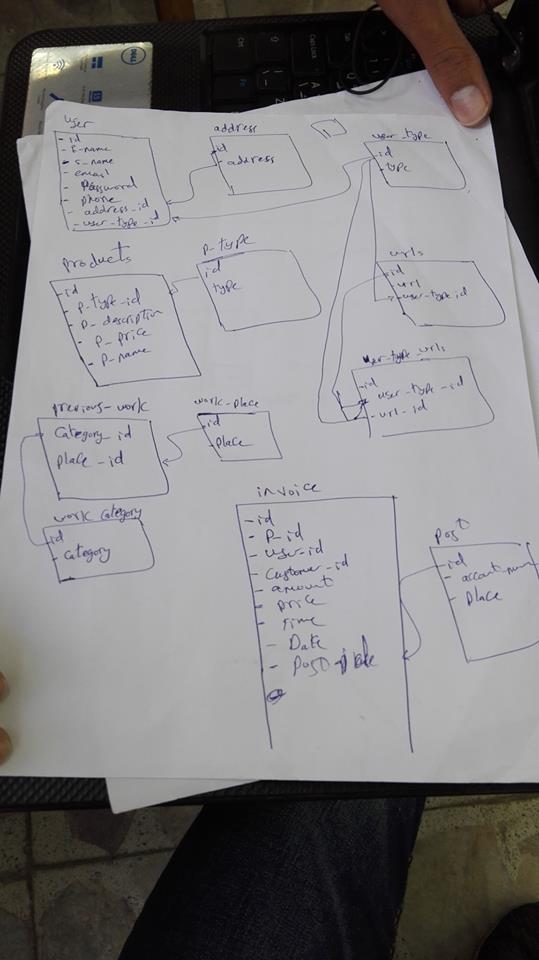 user
- id
- F-name
- s-name
- email
- Password
- phone
- address_id
- user-type-id
address
id
- address
user-type
id
- type
products
- id
- P-type-id
- P-description
- P-price
- P-name
P-type
id
type
urls
- id
- url
- user-type id
user-type-urls
- id
user-type-id
- url-id
previous-work
Category-id
place-id
work-place
id
- place
work category
id
- category
invoice
- id
- P-id
- user-id
- customer-id
- amount
- price
- time
- Date
- Post-
post
- id
- place
DELL
Ctrl
Fn
Caps Lock
Tab